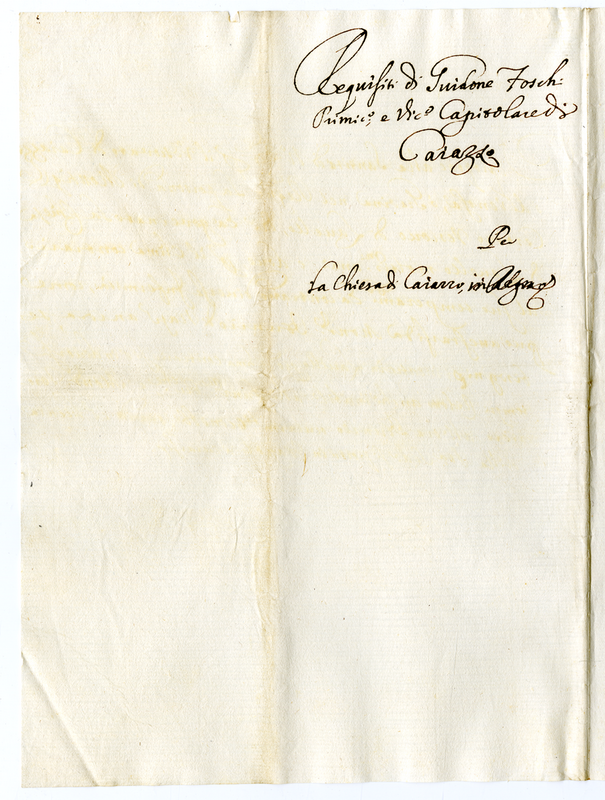 Requisiti di Guidone Fosch:
Primic.º, e Vic.º Capitolare di
Caiazzo
Per
La Chiesa di Caiazzo, in